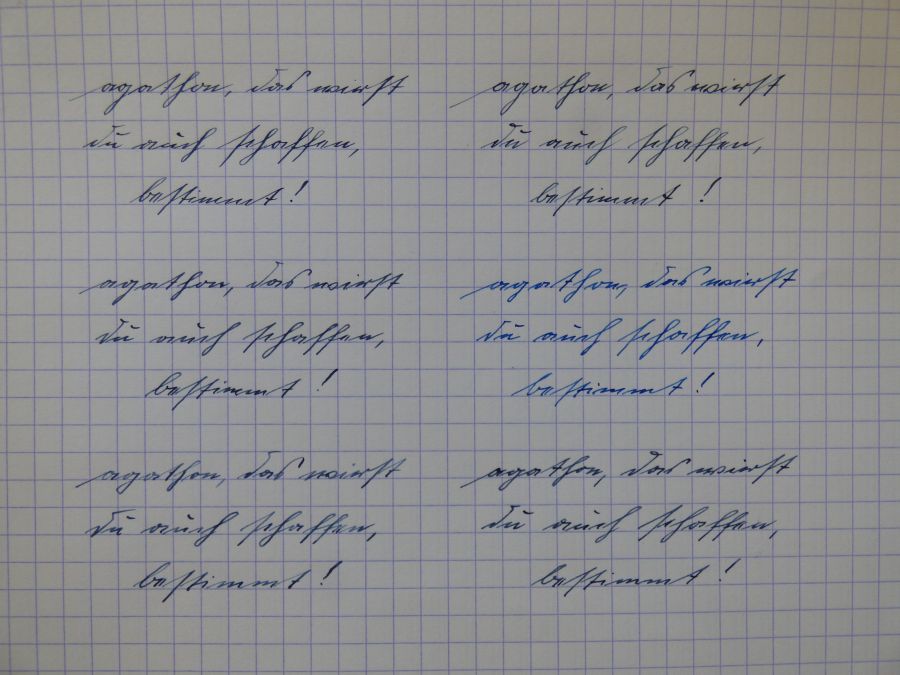 agathon, das wirst
du auch schaffen,
bestimmt!
agathon, das wirst
du auch schaffen,
bestimmt !
agathon, das wirst
du auch schaffen,
bestimmt !
agathon, das wirst
du auch schaffen,
bestimmt !
agathon, das wirst
du auch schaffen,
bestimmt!
agathon, das wirst
du auch schaffen,
bestimmt !